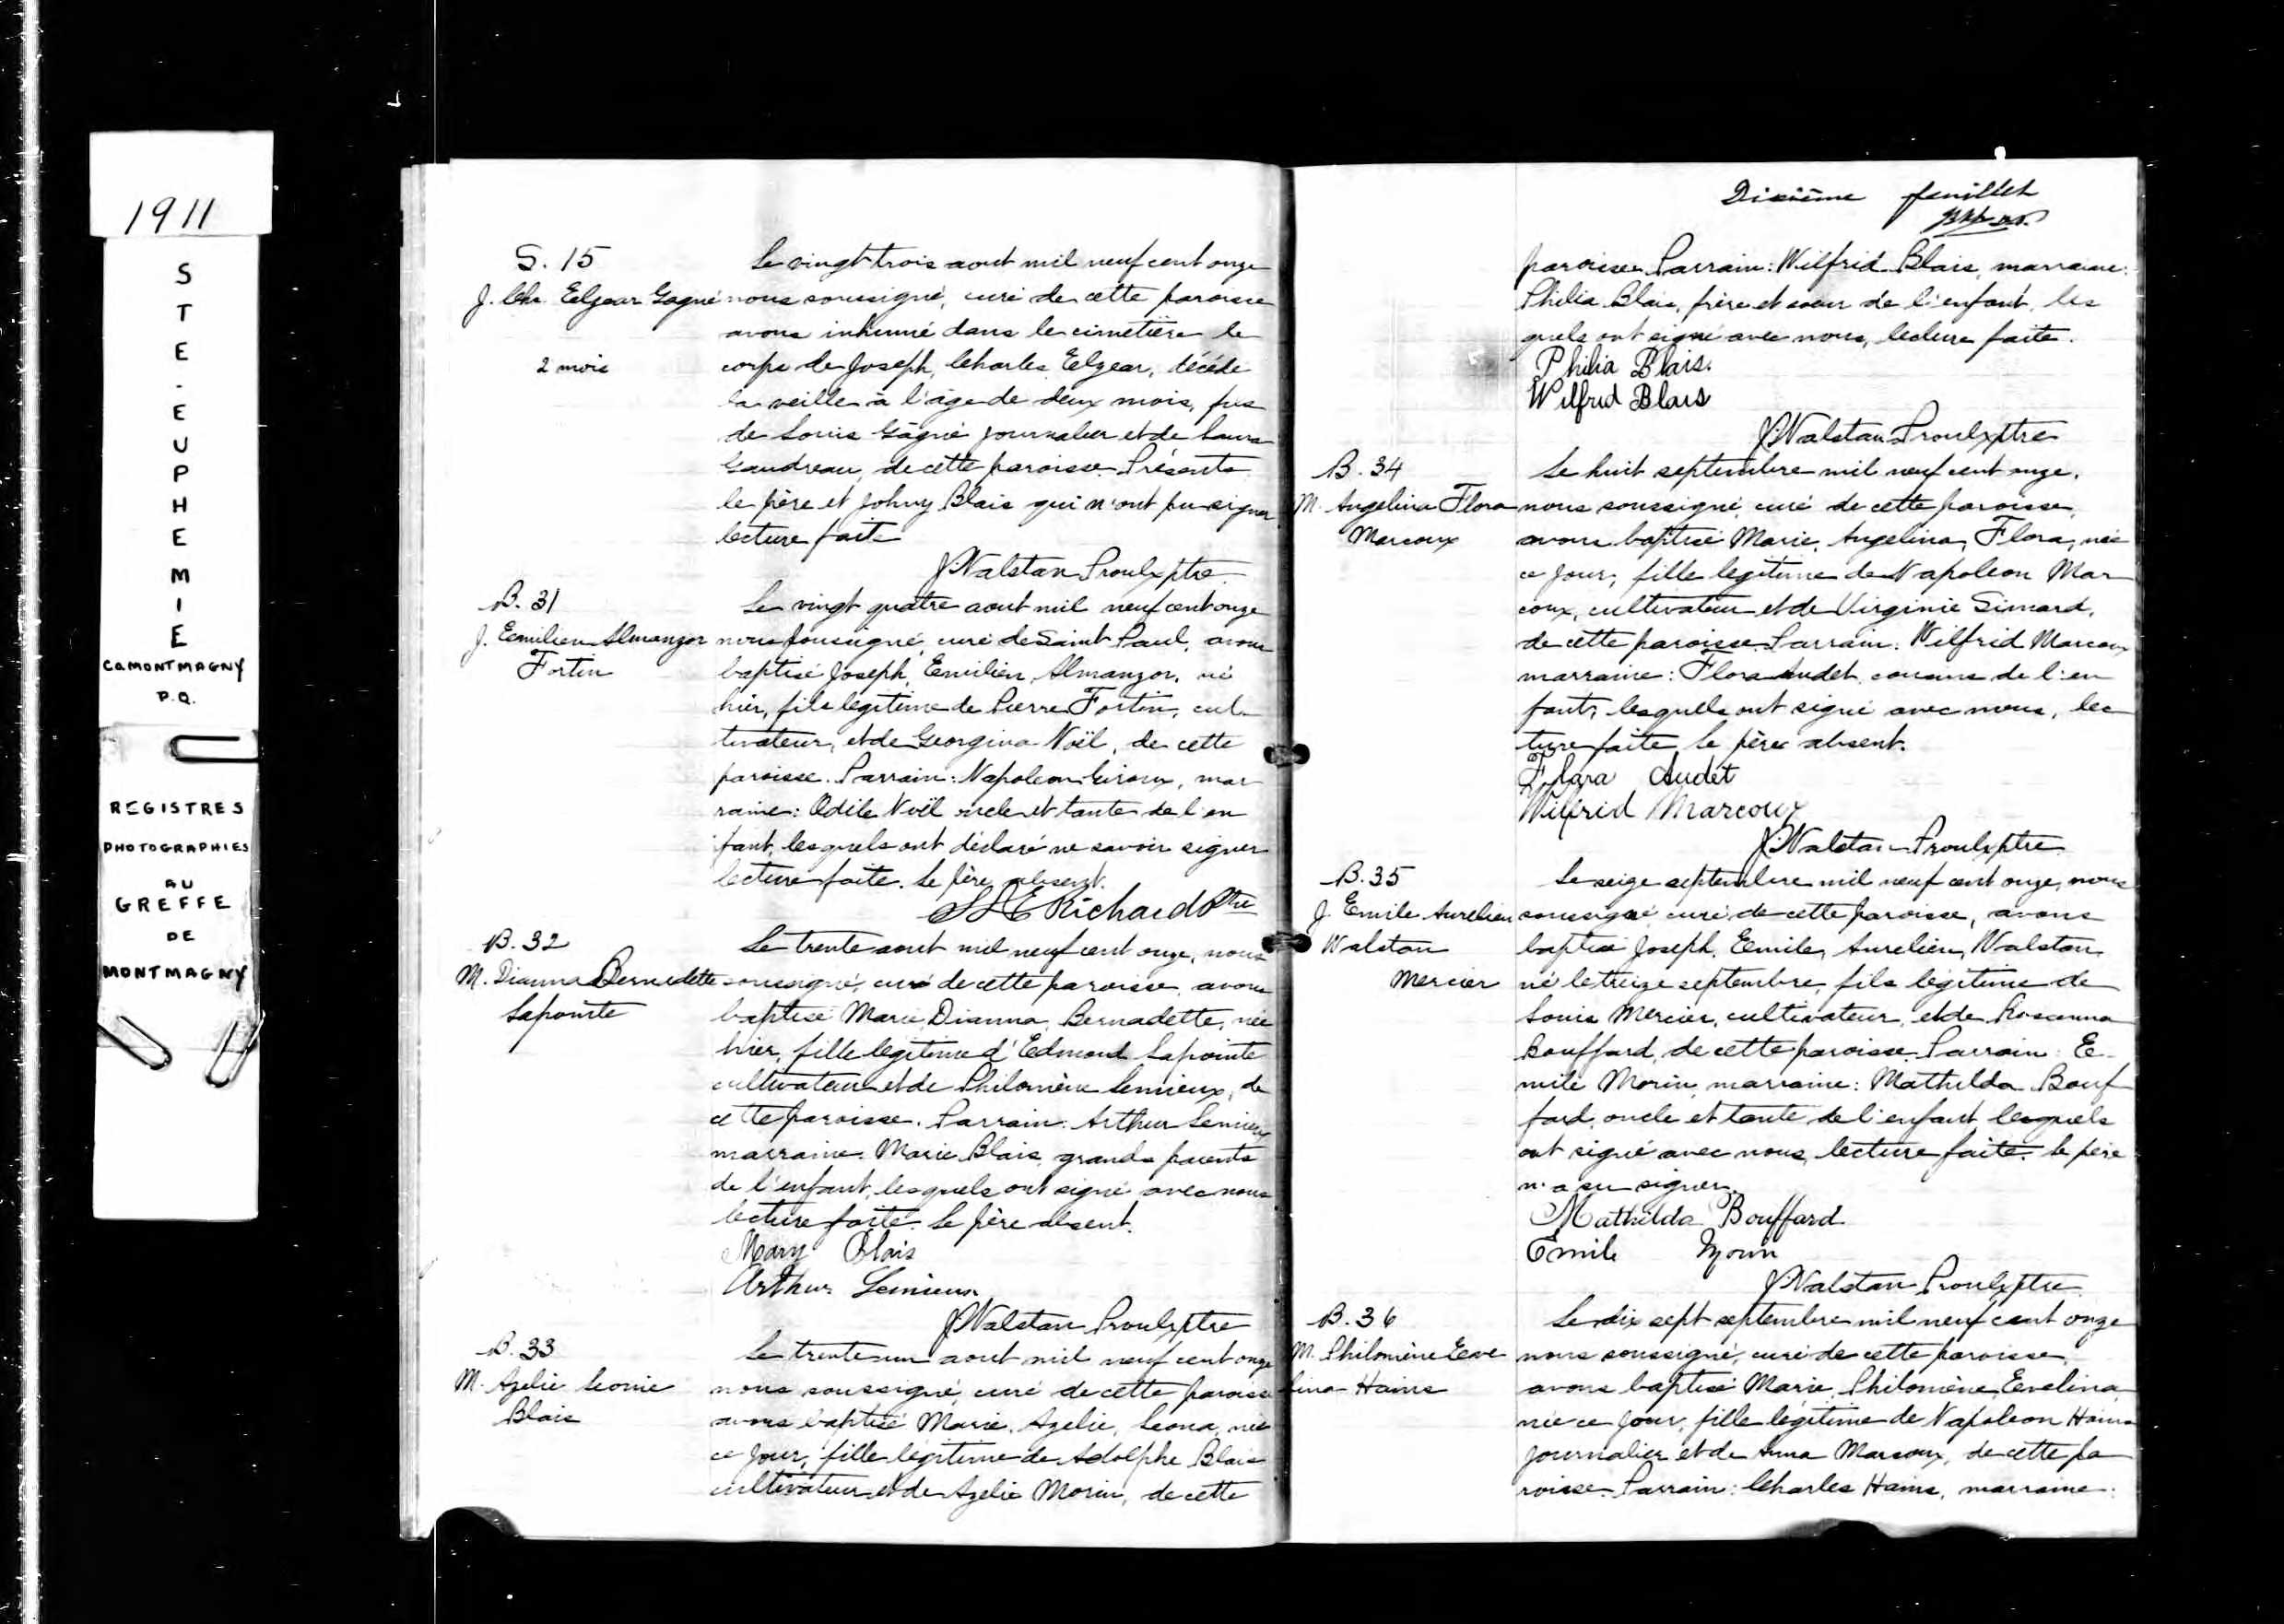 1911
STE-EUPHEMIE
CO MONTMAGNY
P.Q.
REGISTRES
PHOTOGRAPHIES
AU
GREFFE
DE
MONTMAGNY
S. 15
J. Chs. Eelzear Gagné
2 mois
Le vingt trois aout mil neuf cent onze
nous soussigné, curé de cette paroisse
avons inhumé dans le cimetière le
corps de Joseph, Charles Eelzear, décédé
la veille à l'âge de deux mois, fils
de Louis Gagné journalier et de Laura
Gaudreau, de cette paroisse. Présents
le père et Johny Blais qui n'ont pu signer
lecture faite
J. Walstan Proulx ptre
B. 31
J. Eemilien Almanzor
Fortin
Le vingt quatre aout mil neuf cent onze
nous soussigné, curé de Saint Paul, avons
baptisé Joseph, Eemilien, Almanzor, né
hier, fils legitime de Pierre Fortin, cul
tivateur, et de Georgina Noël, de cette
paroisse. Parrain: Napoleon Giroux, mar
raine: Odile Noël oncle et tante de l'en
fant, lesquels ont déclaré ne savoir signer
lecture faite. Le père absent.
Richard Ptre
B. 32
M. Dianna Bernadette
Lapointe
Le trente aout mil neuf cent onze, nous
soussigné, curé de cette paroisse, avons
baptisé Marie, Dianna, Bernadette, née
hier, fille legitime d'Eedmond Lapointe
cultivateur et de Philomène Lemieux, de
cette paroisse. Parrain: Arthur Lemieux
marraine: Marie Blais, grands parents
de l'enfant, lesquels ont signé avec nous
lecture faite. Le père absent.
Mary Blais
Arthur Lemieux
J. Walstan Proulx ptre
B. 33
M. Azelie Leonie
Blais
Le trente un aout mil neuf cent onze
nous soussigné, curé de cette paroisse
avons baptisé Marie, Azelie, Leona, née
ce jour, fille legitime de Adolphe Blais
cultivateur et de Azelie Morin, de cette
Dixième feuillet
paroisse. Parrain: Wilfrid Blais, marraine:
Philia Blais, frère et soeur de l'enfant, les
quels ont signé avec nous, lecture faite.
Philia Blais.
Wilfrid Blais
J. Walstan Proulx ptre
B. 34
M. Angelina Flora
Marcoux
Le huit septembre mil neuf cent onze,
nous soussigné, curé de cette paroisse,
avons baptisé Marie, Angelina, Flora, née
ce jour, fille legitime de Napoleon Mar
coux, cultivateur et de Virginie Simard,
de cette paroisse. Parrain: Wilfrid Marcoux
marraine: Flora Audet, cousins de l'en
fant, lesquels ont signé avec nous, lec
ture faite, le père absent.
Flora Audet
Wilfrid Marcoux
J. Walstan Proulx ptre
B. 35
J. Eemile Aurelien
Walstan
Mercier
Le seize septembre mil neuf cent onze, nous
soussigné curé de cette paroisse, avons
baptisé Joseph, Eemile, Aurelien, Walstan,
né le treize septembre, fils legitime de
Louis Mercier, cultivateur, et de Roseanna
Bouffard, de cette paroisse. Parrain: Ee
mile Morin, marraine: Mathilda Bouf
fard, oncle et tante de l'enfant, lesquels
ont signé avec nous, lecture faite. Le père
n'a su signer.
Mathilda Bouffard
Emile Morin
J. Walstan Proulx ptre
B. 36
M. Philomène Eeve
lina Hains
Le dix sept septembre mil neuf cent onze
nous soussigné, curé de cette paroisse,
avons baptisé Marie, Philomène, Eevelina,
née ce jour, fille legitime de Napoleon Hains
journalier et de Anna Marcoux, de cette pa
roisse. Parrain: Charles Hains, marraine: